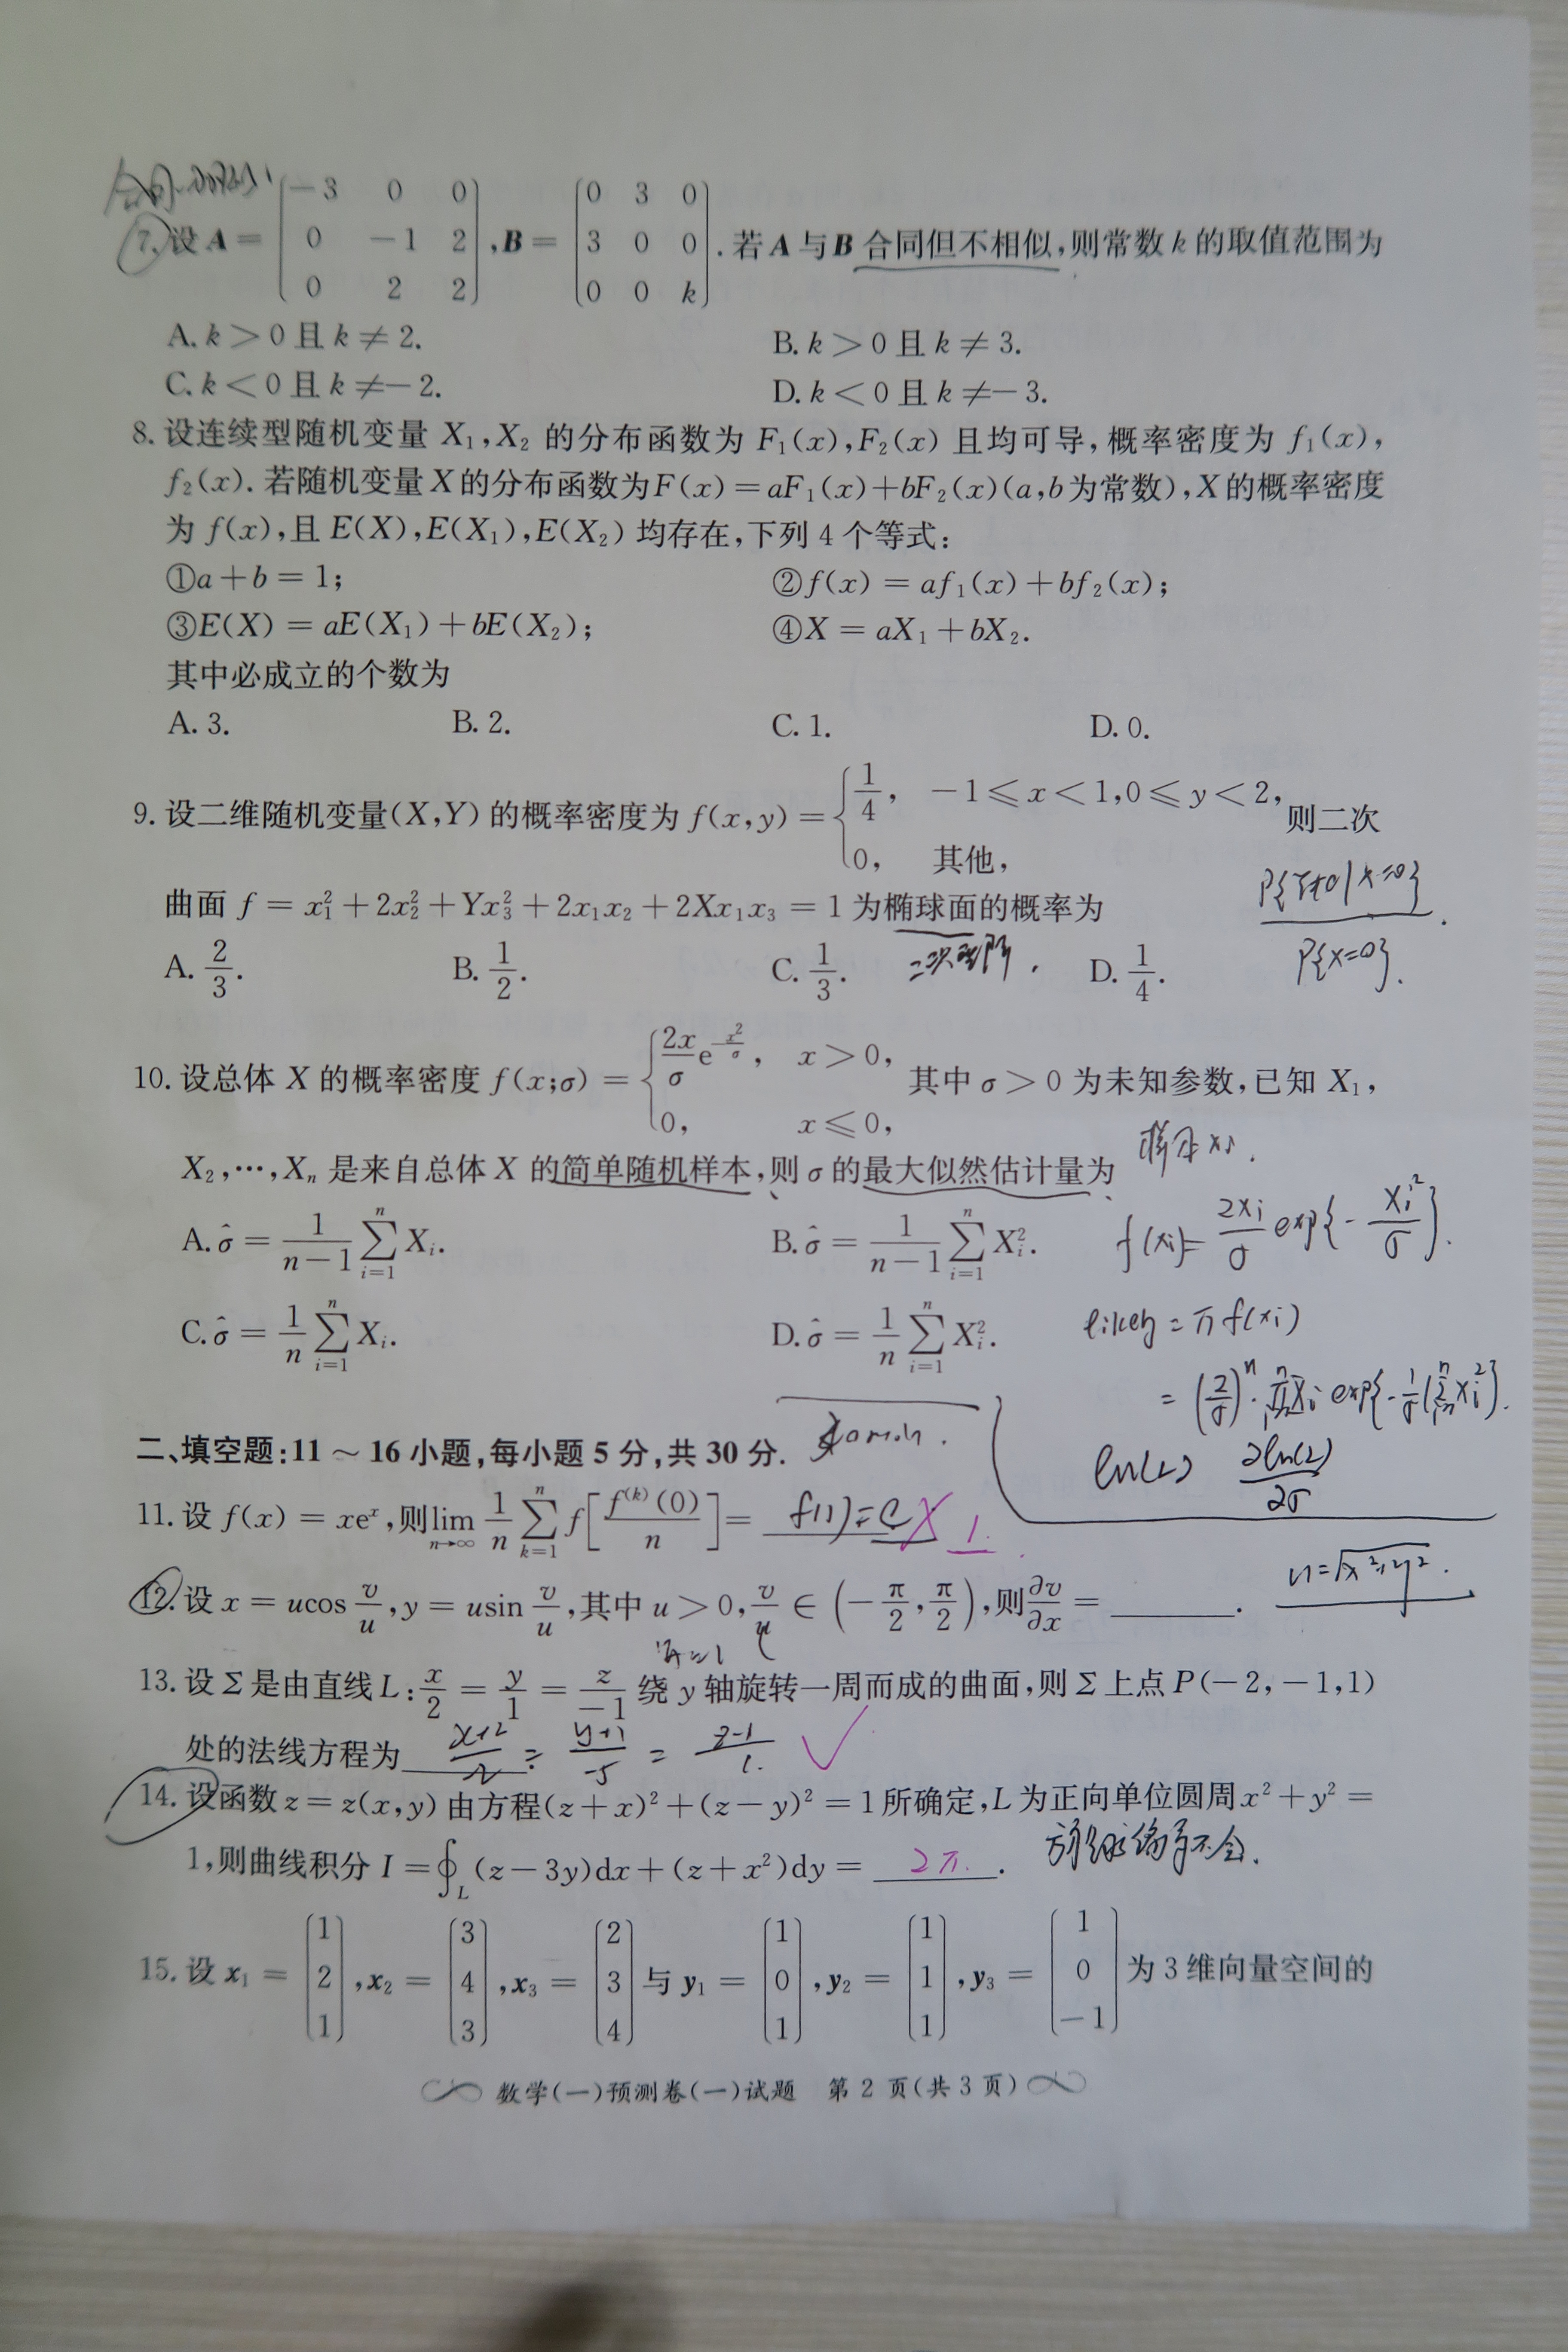 合同.
7. 设 A = [−3 0 0; 0 −1 2; 0 2 2], B = [0 3 0; 3 0 0; 0 0 k]. 若 A 与 B 合同但不相似,则常数 k 的取值范围为
A. k > 0 且 k ≠ 2. B. k > 0 且 k ≠ 3.
C. k < 0 且 k ≠ −2. D. k < 0 且 k ≠ −3.
8. 设连续型随机变量 X₁,X₂ 的分布函数为 F₁(x),F₂(x) 且均可导,概率密度为 f₁(x),
f₂(x). 若随机变量 X 的分布函数为 F(x) = aF₁(x) + bF₂(x)(a,b 为常数),X 的概率密度
为 f(x),且 E(X),E(X₁),E(X₂) 均存在,下列 4 个等式:
①a + b = 1; ②f(x) = af₁(x) + bf₂(x);
③E(X) = aE(X₁) + bE(X₂); ④X = aX₁ + bX₂.
其中必成立的个数为
A. 3. B. 2. C. 1. D. 0.
9. 设二维随机变量(X,Y) 的概率密度为 f(x,y) = { 1/4, −1 ≤ x < 1,0 ≤ y < 2, 0, 其他, 则二次
曲面 f = x₁² + 2x₂² + Yx₃² + 2x₁x₂ + 2Xx₁x₃ = 1 为椭球面的概率为
P{Y≠0|X=0}
P{X=0}.
A. 2/3. B. 1/2. C. 1/3. D. 1/4.
10. 设总体 X 的概率密度 f(x;σ) = { 2x/σ e^(−x²/σ), x > 0, 0, x ≤ 0, 其中 σ > 0 为未知参数,已知 X₁,
X₂,⋯,Xₙ 是来自总体 X 的简单随机样本,则 σ 的最大似然估计量为
样本 xi.
A. σ̂ = 1/(n−1) ∑_{i=1}^{n} Xᵢ. B. σ̂ = 1/(n−1) ∑_{i=1}^{n} Xᵢ².
f(xi)= 2xi/σ exp{- xi²/σ}.
C. σ̂ = 1/n ∑_{i=1}^{n} Xᵢ. D. σ̂ = 1/n ∑_{i=1}^{n} Xᵢ².
= π f(xi)
= (2/σ)ⁿ · ∏ xi exp{-1/σ(∑ xi²)}.
ln(L) ∂ln(L)/∂σ
二、填空题:11 ~ 16 小题,每小题 5 分,共 30 分.
11. 设 f(x) = xeˣ,则 lim_{n→∞} 1/n ∑_{k=1}^{n} f[f⁽ᵏ⁾(0)/n] = f(1)=e × 1.
12. 设 x = ucos v/u, y = usin v/u,其中 u > 0, v/u ∈ (−π/2, π/2),则 ∂v/∂x = ______.
u=√(x²+y²).
13. 设 Σ 是由直线 L: x/2 = y/1 = z/−1 绕 y 轴旋转一周而成的曲面,则 Σ 上点 P(−2,−1,1)
处的法线方程为 x+2/2 = y+1/-5 = z-1/1. ✓
14. 设函数 z = z(x,y) 由方程(z + x)² + (z − y)² = 1 所确定,L 为正向单位圆周 x² + y² =
1,则曲线积分 I = ∮_L (z − 3y)dx + (z + x²)dy = 2π.
偏导不会.
15. 设 x₁ = [1; 2; 1], x₂ = [3; 4; 3], x₃ = [2; 3; 4] 与 y₁ = [1; 0; 1], y₂ = [1; 1; 1], y₃ = [1; 0; −1] 为 3 维向量空间的
数学(一)预测卷(一)试题 第 2 页(共 3 页)